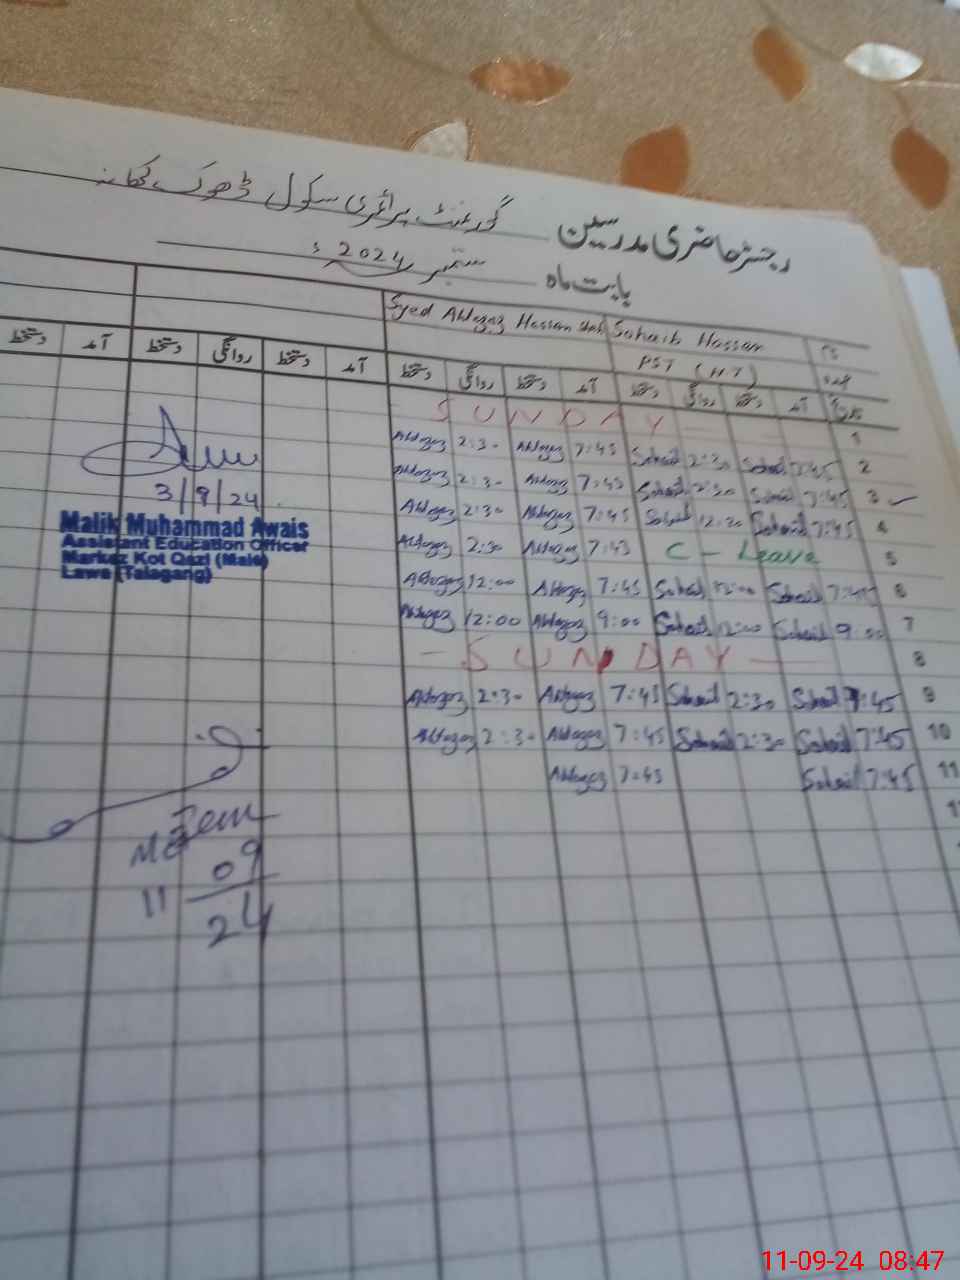 رجسٹر حاضری مدرسین گورنمنٹ پرائمری سکول ڈھوک
بابت ماہ ستمبر 2024ء
Syed Hassan Shah Sohaib Hassan
PST (HT)
تاریخ آمد دستخط روانگی دستخط آمد دستخط روانگی دستخط آمد دستخط روانگی دستخط آمد دستخط
SUNDAY 1
2:30 7:45 Sohaib 2:30 Sohaib 7:45 2
2:30 7:45 Sohaib 2:30 Sohaib 7:45 3
2:30 7:45 Sohaib 12:30 Sohaib 7:45 4
2:30 7:45 C - Leave 5
12:00 7:45 Sohaib 12:00 Sohaib 7:45 6
12:00 9:00 Sohaib 12:00 Sohaib 9:00 7
- SUNDAY - 8
2:30 7:45 Sohaib 2:30 Sohaib 7:45 9
2:30 7:45 Sohaib 2:30 Sohaib 7:45 10
7:45 Sohaib 7:45 11
3/9/24
Malik Muhammad Awais
Assistant Education Officer
Markaz Kot Qazi (Male)
Lawa (Talagang)
11 09
24
11-09-24 08:47